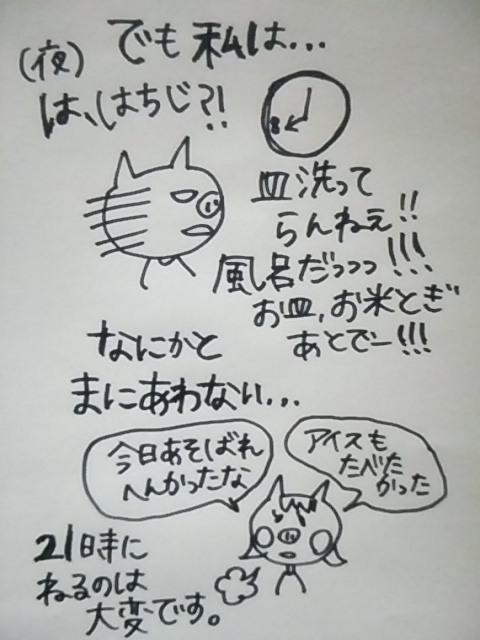 でも私は...
(夜)
は、はちじ?!
8
皿洗って
らんねえ!!
風呂だっっっ!!!
お皿,お米とぎ
あとでー!!!
なにかと
まにあわない...
今日あそばれ
へんかったな
アイスも
たべた
かった
21時に
ねるのは
大変です。